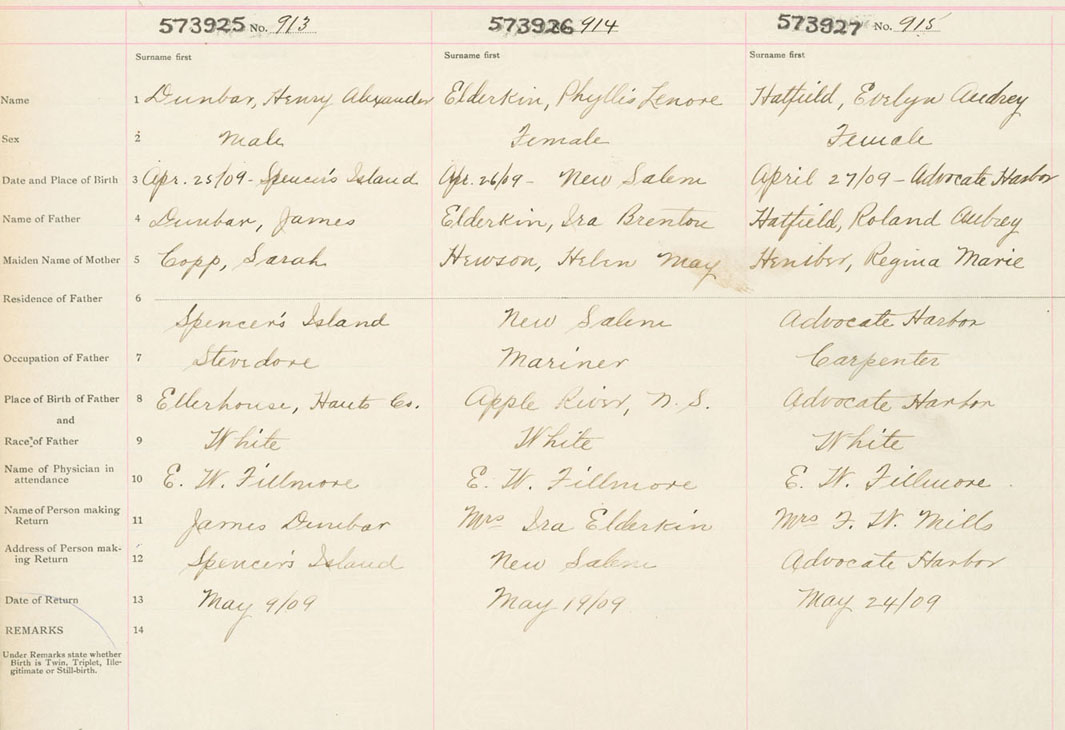 573925 No. 913 573926 914 573927 No. 915
Surname first Surname first Surname first
Name 1 Dunbar, Henry Alexander Elderkin, Phyllis Lenore Hatfield, Evelyn Audrey
Sex 2 Male Female Female
Date and Place of Birth 3 Apr. 25/09 - Spencer's Island Apr. 26/09 - New Salem April 27/09 - Advocate Harbor
Name of Father 4 Dunbar, James Elderkin, Ira Brenton Hatfield, Roland Aubrey
Maiden Name of Mother 5 Copp, Sarah Hewson, Helen May Regina Marie
Residence of Father 6
Spencer's Island New Salem Advocate Harbor
Occupation of Father 7 Stevedore Mariner Carpenter
Place of Birth of Father 8 Ellerhouse, Hants Co. Apple River, N.S. Advocate Harbor
and
Race of Father 9 White White White
Name of Physician in
attendance 10 E. W. Fillmore E. W. Fillmore E. W. Fillmore
Name of Person making
Return 11 James Dunbar Mrs Ira Elderkin Mrs F. W. Mills
Address of Person mak-
ing Return 12 Spencer's Island New Salem Advocate Harbor
Date of Return 13 May 9/09 May 19/09 May 24/09
REMARKS 14
Under Remarks state whether
Birth is Twin, Triplet, Ille-
gitimate or Still-birth.